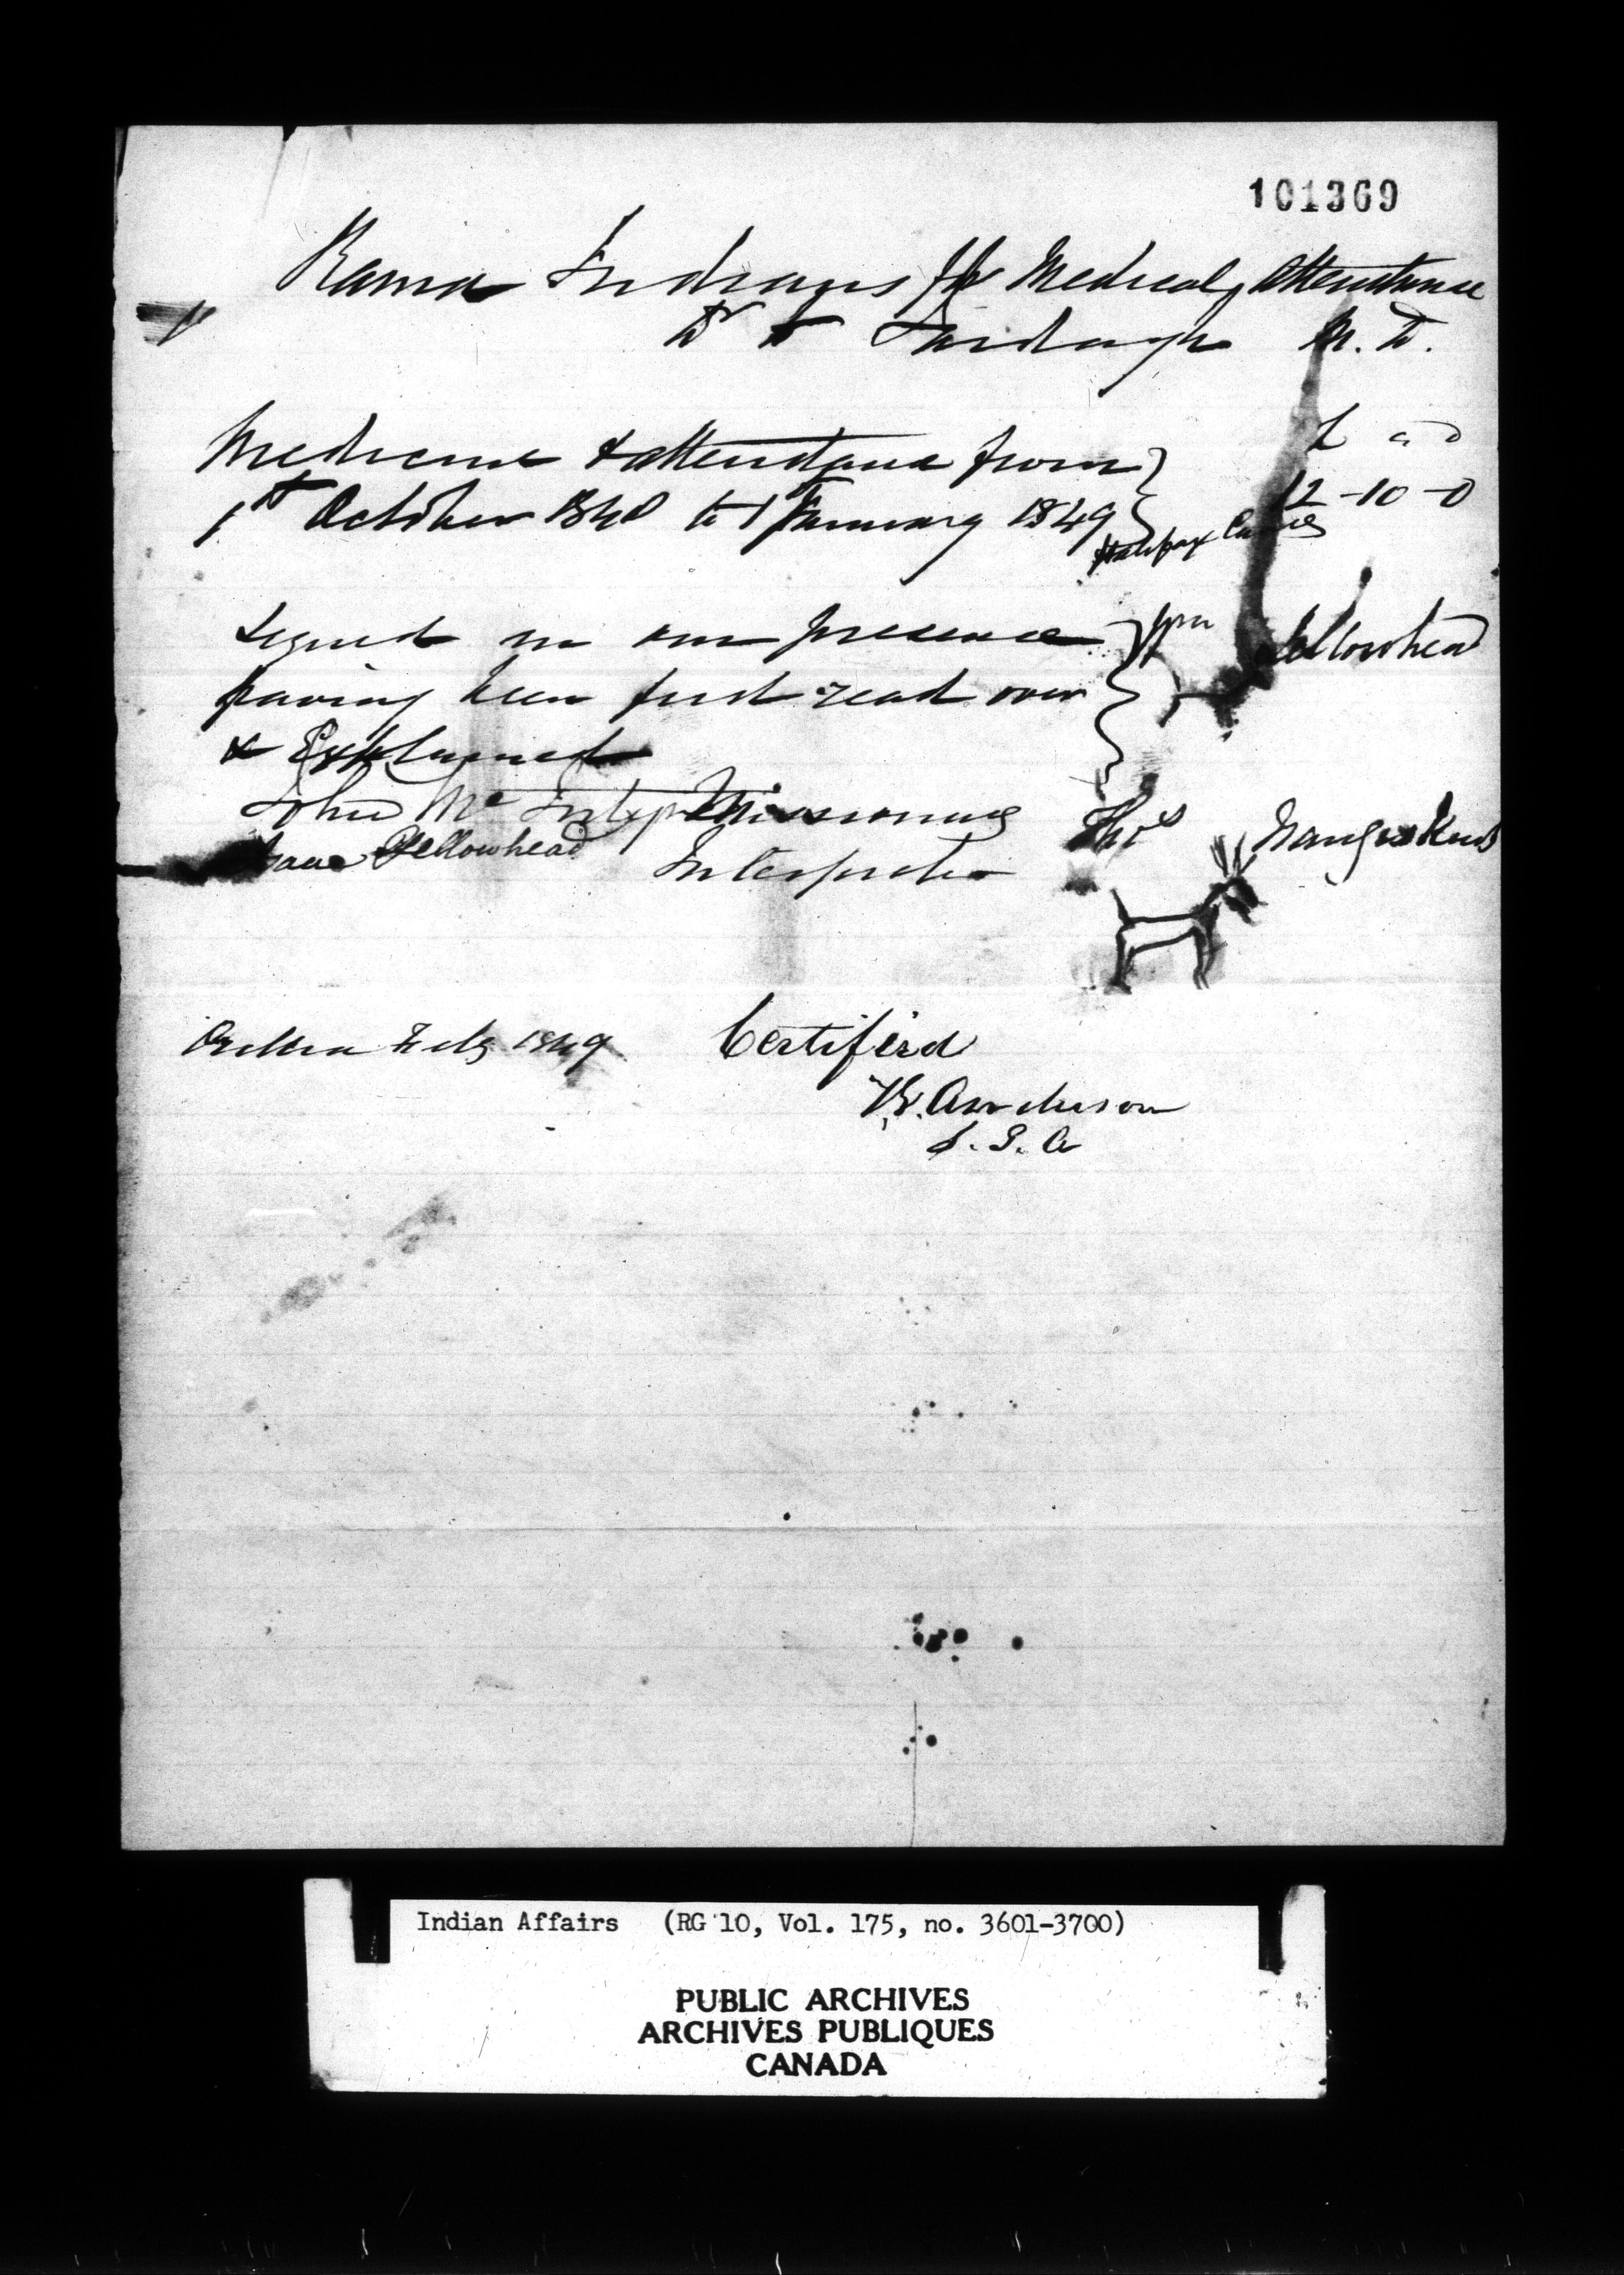 101369
Rama Indians for Medical Attendance
Dr to Ardagh M.D.
£ s D
Medicine & attendance from
1st October 1848 to 1 January 1849 12-10-0
Halifax Currency
Signed in our presence Wm Yellowhead
having been first read over
& Explained
John Mc Missionary Thos Naingishkung
Isaac Yellowhead Interpreter
Orillia Feby 1849 Certified
T.G. Anderson
S.I.A
Indian Affairs (RG 10, Vol. 175, no. 3601-3700)
PUBLIC ARCHIVES
ARCHIVES PUBLIQUES
CANADA